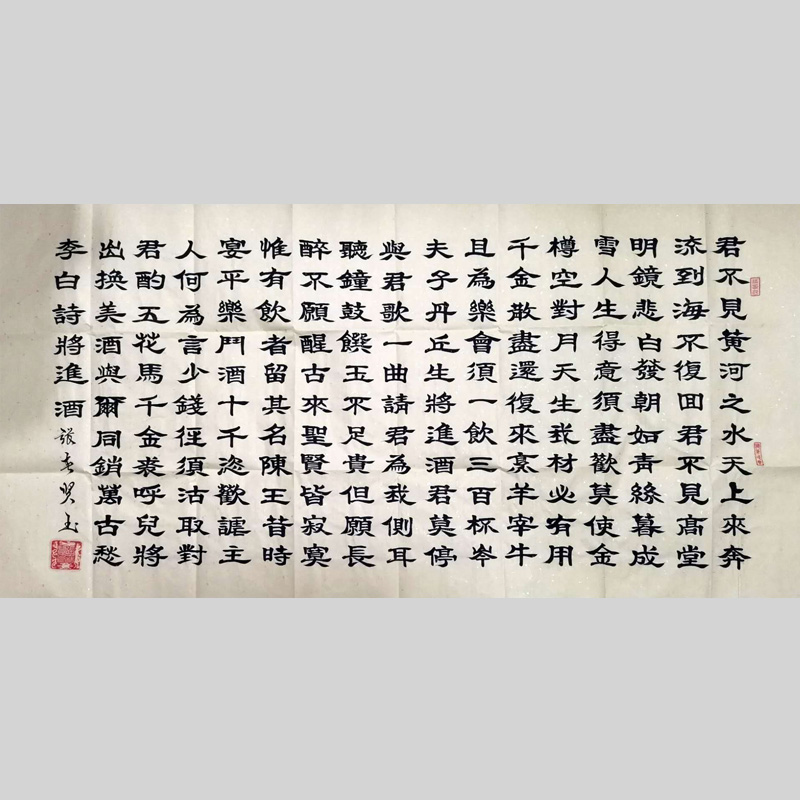 君不見黃河之水天上來奔
流到海不復回君不見高堂
明鏡悲白發朝如青絲暮成
雪人生得意須盡歡莫使金
樽空對月天生我材必有用
千金散盡還復來烹羊宰牛
且為樂會須一飲三百杯岑
夫子丹丘生將進酒君莫停
與君歌一曲請君為我側耳
聽鐘鼓饌玉不足貴但願長
醉不願醒古來聖賢皆寂寞
惟有飲者留其名陳王昔時
宴平樂鬥酒十千恣歡謔主
人何為言少錢徑須沽取對
君酌五花馬千金裘呼兒將
出換美酒與爾同銷萬古愁
李白詩將進酒